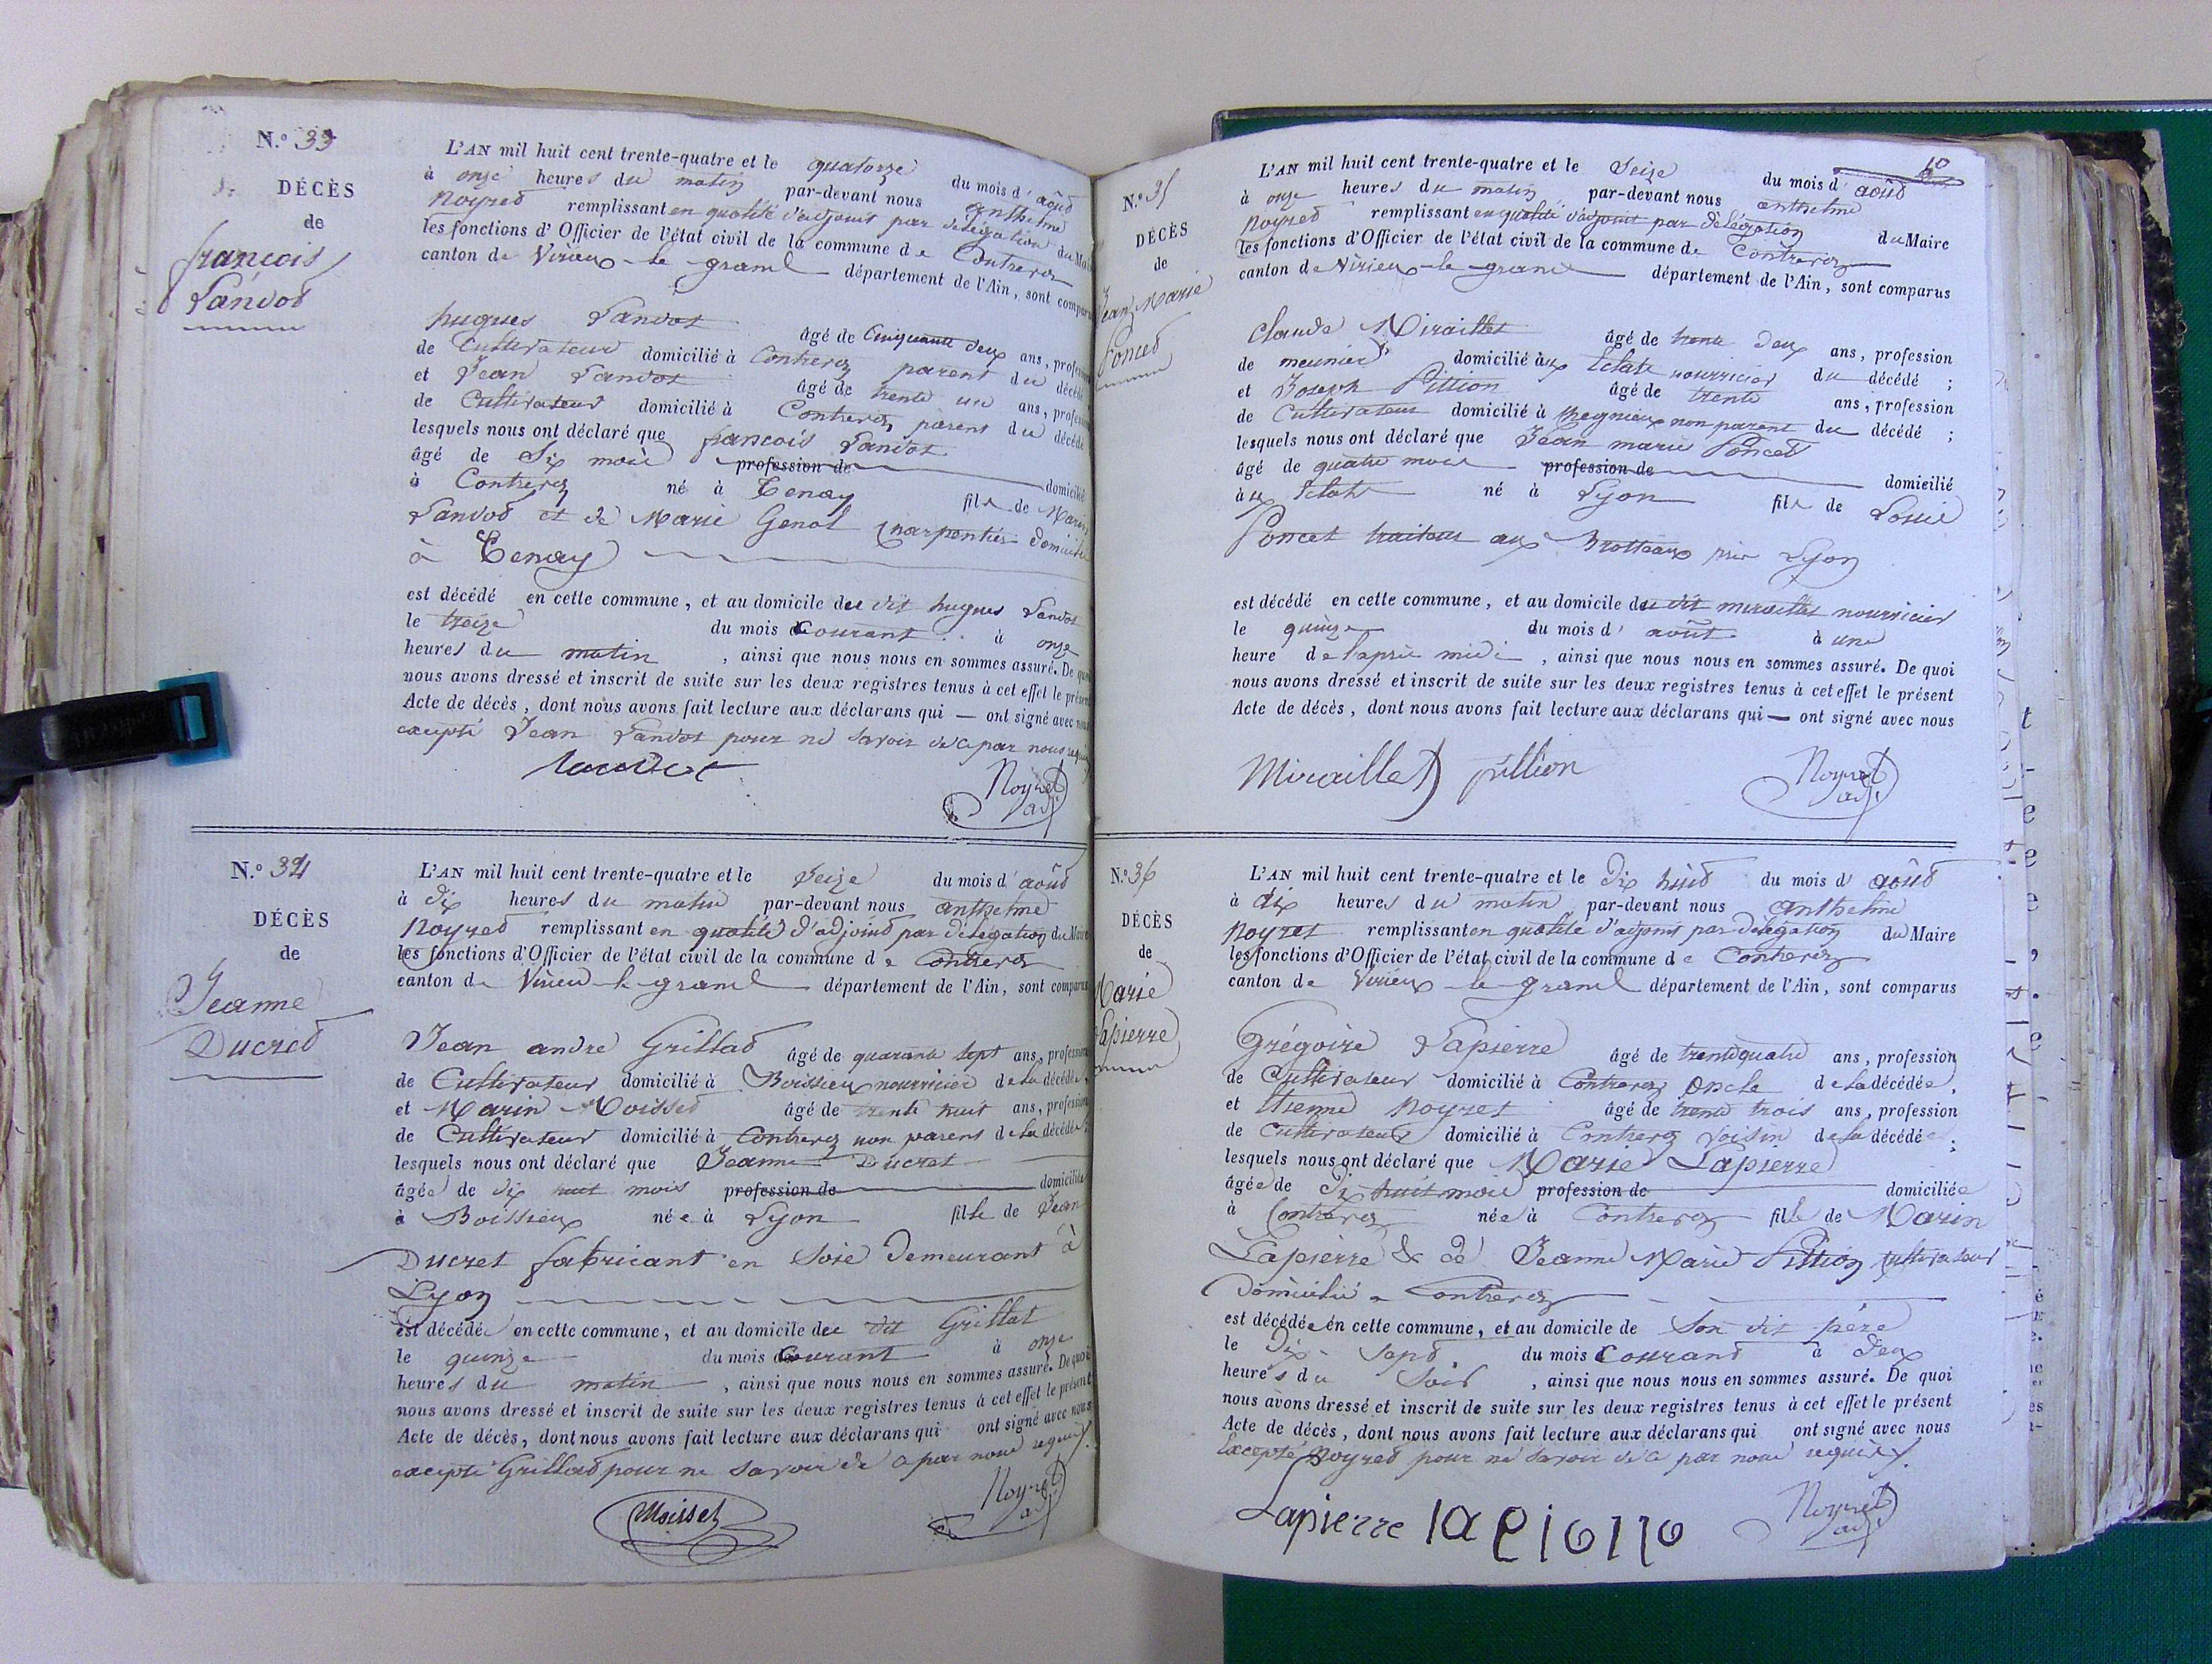 N.º 33
DÉCÈS
de
françois
Landot
L'AN mil huit cent trente-quatre et le quatorze du mois d'août
à onze heures du matin par-devant nous anthelme
Noyret remplissant en qualité d'adjoint par délégation du Maire
les fonctions d'Officier de l'état civil de la commune de Contrevoz
canton de Virieux-le-grand département de l'Ain, sont comparus
hugues Landot âgé de Cinquante deux ans, profession
de Cultivateur domicilié à Contrevoz parent du décédé
et Jean Landot âgé de trente un ans, profession
de Cultivateur domicilié à Contrevoz parent du décédé
lesquels nous ont déclaré que françois Landot
âgé de Six mois profession de domicilié
à Contrevoz né à Tenay fils de Marin
Landot et de Marie Genot charpentier domicilié
à Tenay
est décédé en cette commune, et au domicile du dit hugues Landot
le treize du mois Courant à onze
heures du matin, ainsi que nous nous en sommes assuré. De quoi
nous avons dressé et inscrit de suite sur les deux registres tenus à cet effet le présent
Acte de décès, dont nous avons fait lecture aux déclarans qui — ont signé avec nous
excepté Jean Landot pour ne savoir de ce par nous requis
Landot Noyret adj
N.º 34
DÉCÈS
de
Jeanne
Ducret
L'AN mil huit cent trente-quatre et le seize du mois d'août
à dix heures du matin par-devant nous anthelme
Noyret remplissant en qualité d'adjoint par délégation du Maire
les fonctions d'Officier de l'état civil de la commune de Contrevoz
canton de Virieu-le-grand département de l'Ain, sont comparus
Jean andré Grillat âgé de quarante sept ans, profession
de Cultivateur domicilié à Boissieu nourricier de la décédée,
et Marin Moisset âgé de trente huit ans, profession
de Cultivateur domicilié à Contrevoz non parent de la décédée;
lesquels nous ont déclaré que Jeanne Ducret
âgée de dix huit mois profession de domiciliée
à Boissieux née à Lyon fille de Jean
Ducret fabricant en Soie Demeurant à
Lyon
est décédée en cette commune, et au domicile du dit Grillat
le quinze du mois Courant à onze
heures du matin, ainsi que nous nous en sommes assuré. De quoi
nous avons dressé et inscrit de suite sur les deux registres tenus à cet effet le présent
Acte de décès, dont nous avons fait lecture aux déclarans qui ont signé avec nous
excepté Grillat pour ne savoir de ce par nous requis.
Moisset Noyret adj
10
N.º 35
DÉCÈS
de
Jean Marie
Poncet
L'AN mil huit cent trente-quatre et le Seize du mois d'août
à onze heures du matin par-devant nous anthelme
Noyret remplissant en qualité d'adjoint par délégation du Maire
les fonctions d'Officier de l'état civil de la commune de Contrevoz
canton de Virieux-le-grand département de l'Ain, sont comparus
Claude Miraillet âgé de trente deux ans, profession
de meunier domicilié aux Eclats nourricier du décédé;
et Joseph Pittion âgé de trente ans, profession
de Cultivateur domicilié à Chegnieux non parent du décédé;
lesquels nous ont déclaré que Jean marie Poncet
âgé de quatre mois profession de domicilié
aux Eclats né à Lyon fils de Louis
Poncet traiteur aux Brotteaux près Lyon
est décédé en cette commune, et au domicile du dit miraillet nourricier
le quinze du mois d'août à une
heure de l'après midi, ainsi que nous nous en sommes assuré. De quoi
nous avons dressé et inscrit de suite sur les deux registres tenus à cet effet le présent
Acte de décès, dont nous avons fait lecture aux déclarans qui — ont signé avec nous
Miraillet pittion Noyret adj
N.º 36
DÉCÈS
de
Marie
Lapierre
L'AN mil huit cent trente-quatre et le Dix huit du mois d'août
à dix heures du matin par-devant nous anthelme
Noyret remplissant en qualité d'adjoint par délégation du Maire
les fonctions d'Officier de l'état civil de la commune de Contrevoz
canton de Virieux-le-grand département de l'Ain, sont comparus
Grégoire Lapierre âgé de trente quatre ans, profession
de Cultivateur domicilié à Contrevoz Oncle de la décédée,
et Etienne Noyret âgé de trente trois ans, profession
de Cultivateur domicilié à Contrevoz Voisin de la décédée;
lesquels nous ont déclaré que Marie Lapierre
âgée de Dix huit mois profession de domiciliée
à Contrevoz née à Contrevoz fille de Marin
Lapierre & de Jeanne Marie Pittion cultivateur
Domicilié à Contrevoz
est décédée en cette commune, et au domicile de Son dit père
le Dix-Sept du mois Courant à Deux
heures du Soir, ainsi que nous nous en sommes assuré. De quoi
nous avons dressé et inscrit de suite sur les deux registres tenus à cet effet le présent
Acte de décès, dont nous avons fait lecture aux déclarans qui ont signé avec nous
Excepté Noyret pour ne savoir de ce par nous requis.
Lapierre Noyret adj